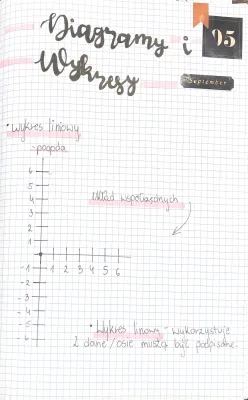 Diagramy i
Wykresy
05
September
• wykres liniowy
- pogoda
6
5
4
3
2
1
-1 1 2 3 4 5 6
-2
-3
-4
-5
-6
układ współrzędnych
• Wykres liniowy - wykorzystuje
2 dane / osie muszą być podpisane.